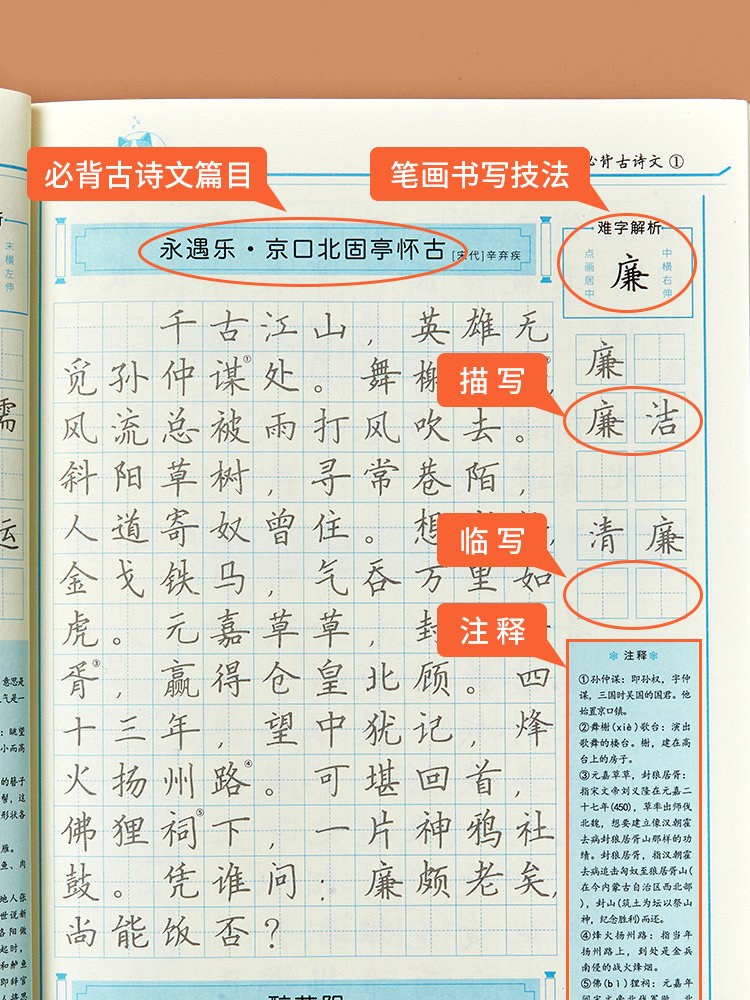 必背古诗文①
必背古诗文篇目
笔画书写技法
永遇乐·京口北固亭怀古
[宋代]辛弃疾
千古江山，英雄无
觅孙仲谋①处。舞榭
风流总被雨打风吹去。
斜阳草树，寻常巷陌，
人道寄奴曾住。想
金戈铁马，气吞万里如
虎。元嘉草草，封
胥③，赢得仓皇北顾。四
十三年，望中犹记，烽
火扬州路④。可堪回首，
佛狸祠⑤下，一片神鸦社
鼓。凭谁问：廉颇老矣，
尚能饭否？
难字解析
点画居中
廉
中横右伸
廉
描写
廉洁
清廉
临写
注释
注释
①孙仲谋：即孙权，字仲
谋，三国时吴国的国君。他
始置京口镇。
②舞榭(xiè)歌台：演出
歌舞的楼台。榭，建在高
台上的房子。
③元嘉草草，封狼居胥：
指宋文帝刘义隆在元嘉二
十七年(450)，草率出师伐
北魏，想要建立像汉朝霍
去病封狼居胥山那样的功
绩。封狼居胥，指汉朝霍
去病追击匈奴至狼居胥山(
在今内蒙古自治区西北部
)，封山(筑土为坛以祭山
神，纪念胜利)而还。
④烽火扬州路：指当年
扬州路上，到处是金兵
南侵的战火烽烟。
⑤佛(bì)狸祠：元嘉年
末横左伸
意思是
气是一
：眺望
小而高
的簪子
帮，这
形状各
雁。
鱼、肉
地人张
世说新
洛阳做
起时，
和鲈鱼
即辞官